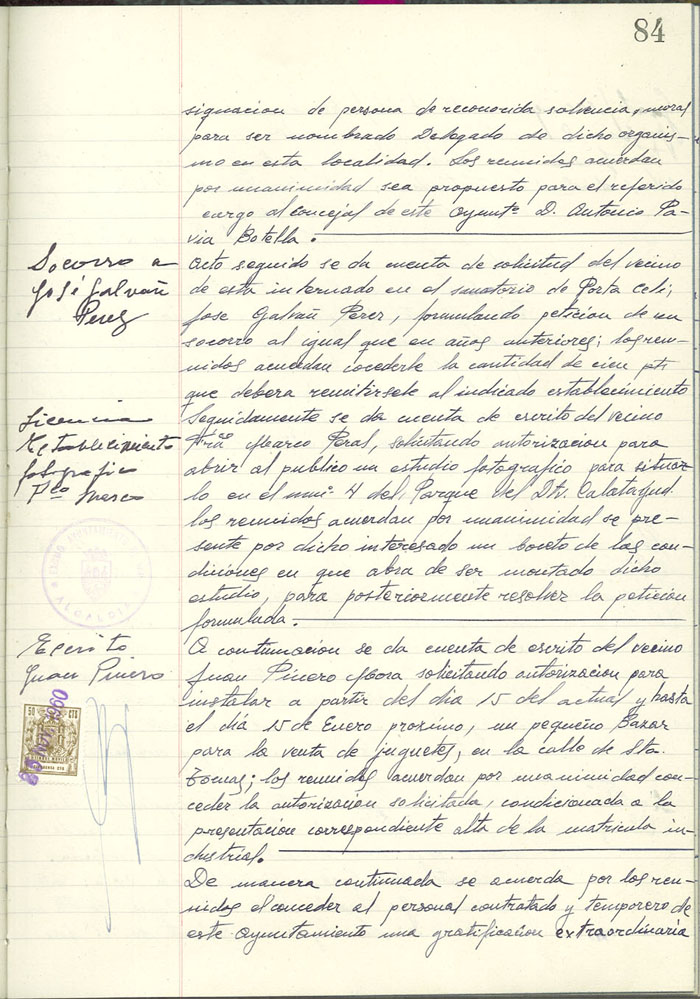 84
signacion de persona de reconocida solvencia, moral
para ser nombrado Delegado de dicho organis-
mo en esta localidad. Los reunidos acuerdan
por unanimidad sea propuesto para el referido
cargo al concejal de este Ayuntº D. Antonio Pa-
via Botella.
Socorro a
José Galvañ
Perez
Acto seguido se da cuenta de solicitud del vecino
de esta internado en el sanatorio de Porta Celi;
Jose Galvañ Perez, formulando peticion de un
socorro al igual que en años anteriores; los reu-
nidos acuerdan cocederle la cantidad de cien pts
que debera remitirsele al indicado establecimiento
Licencia
Establecimiento
fotografico
Fco Marco
Seguidamente se da cuenta de escrito del vecino
Marco Peral, solicitando autorizacion para
abrir al publico un estudio fotografico para situar
lo en el num. 4 del Parque del Dr. Calatayud.
los reunidos acuerdan por unanimidad se pre-
sente por dicho interesado un boceto de las con-
diciones en que abra de ser montado dicho
estudio, para posteriormente resolver la peticion
formulada.
Escrito
Juan Piñero
A continuacion se da cuenta de escrito del vecino
Juan Piñero Mora solicitando autorizacion para
instalar a partir del dia 15 del actual y hasta
el dia 15 de Enero proximo, un pequeño Bazar
para la venta de juguetes, en la calle de Sto.
Tomas; los reunidos acuerdan por unanimidad con-
ceder la autorización solicitada, condicionada a la
presentacion correspondiente alta de la matricula in-
dustrial.
50 CTS
NOV 1960
De manera continuada se acuerda por los reu-
nidos el conceder al personal contratado y temporero de
este Ayuntamiento una gratificacion extraordinaria